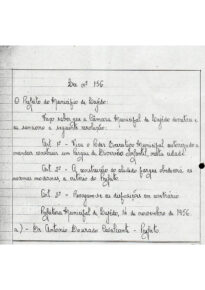 Lei nº 156
O Prefeito do Município de Lajedo:
Faço saber que a Câmara Municipal de Lajedo decretou e
eu sanciono a seguinte resolução:
Art. 1º - Fica o Poder Executivo Municipal autorizado a
mandar construir um Parque de Diversão Infantil, nesta cidade.
Art. 2º - A construção do aludido parque obedecerá as
normas modernas, a critério do Prefeito.
Art. 3º - Revogam-se as disposições em contrário.
Prefeitura Municipal de Lajedo, 14 de novembro de 1956.
a) - Dr. Antonio Dourado Cavalcanti - Prefeito